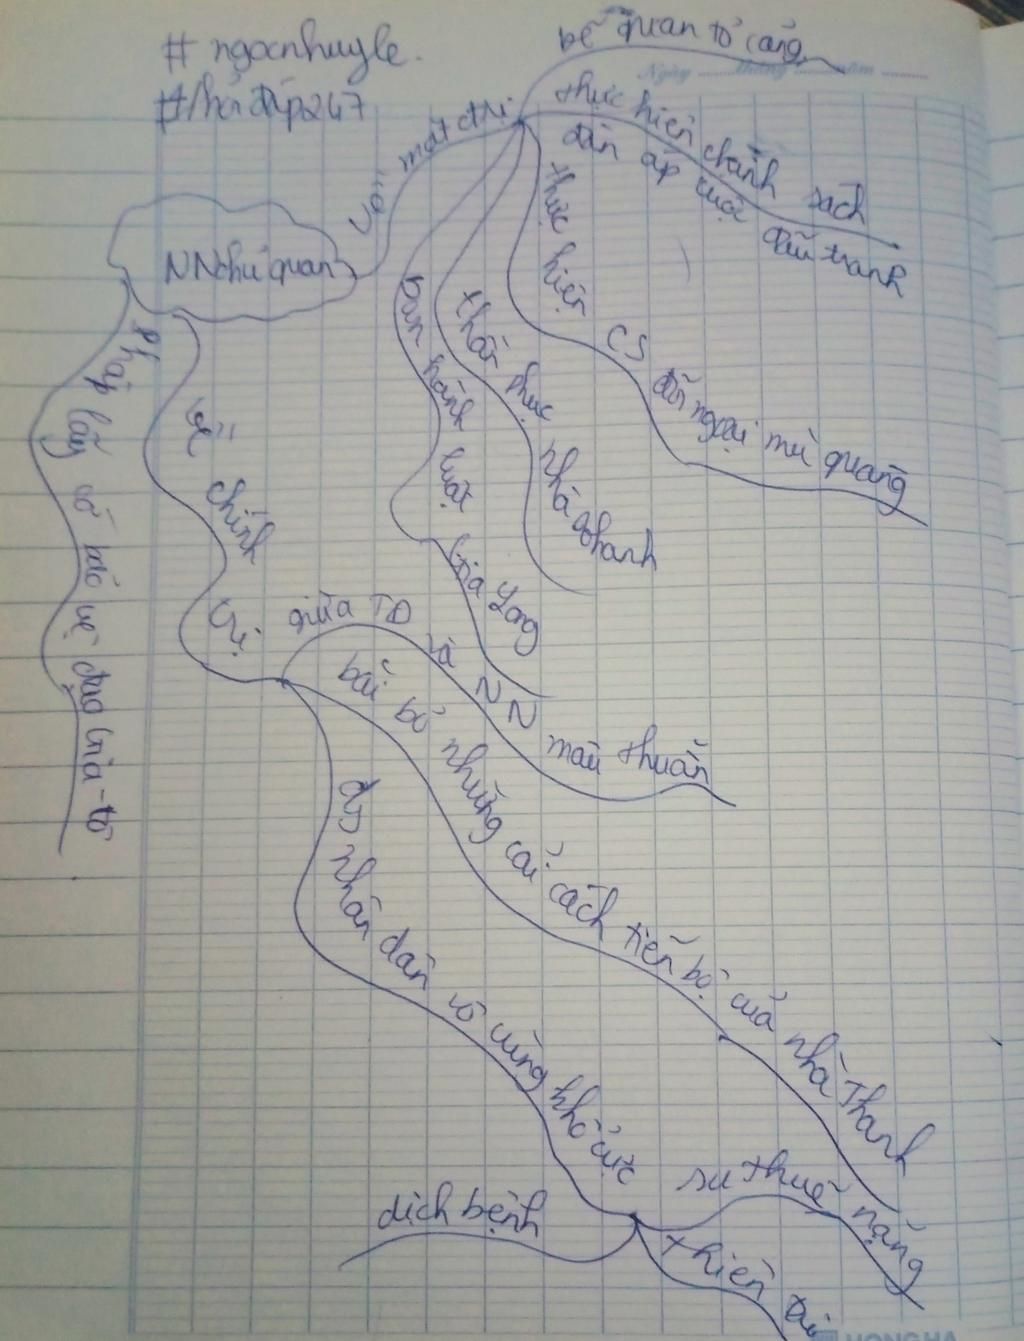 # ngocnhuyle.
#hỏi đáp247
Ngày ........ tháng ........ năm ........
NN chủ quan
vốn
mất dần
bế quan tỏ cảng
thực hiện chính sách
đàn áp cuộc đấu tranh
thực hiện CS đối ngoại mù quáng
thần phục nhà Thanh
ban hành luật Gia Long
về chính trị
giữa TD và NN mâu thuẫn
bãi bỏ những cải cách tiến bộ của nhà Thanh
đs nhân dân vô cùng khổ cực
sư thuế nặng
thiên
dịch bệnh
Pháp lấy cớ bảo vệ đạo Gia-tô
HONG HA